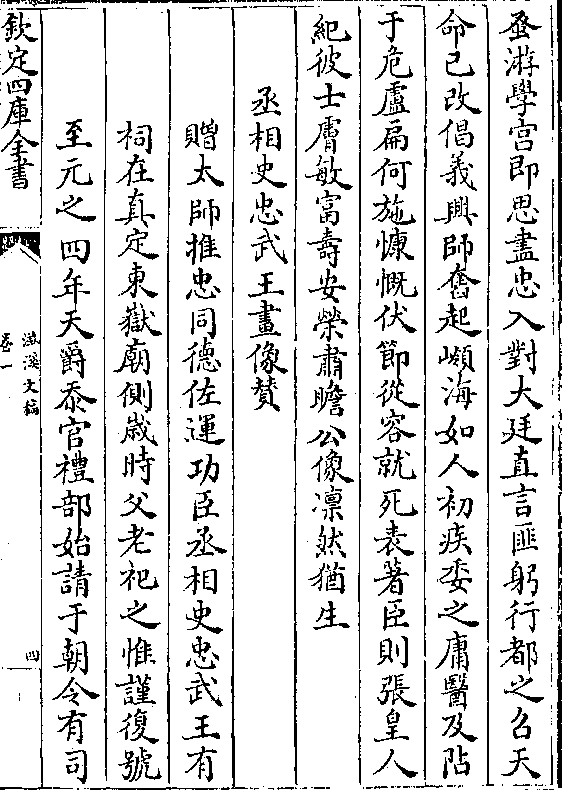 蚤游學宫即思盡忠入對大廷直言匪躬行都之召天
命已改倡義興師奮起嶺海如人初疾委之庸醫及阽
于危盧扁何施慷慨伏節從容就死表著臣則張皇人
紀彼士膚敏富壽安榮肅瞻公像凛然猶生
丞相史忠武王畫像賛
贈太師推忠同德佐運功臣丞相史忠武王有
祠在真定東嶽廟側歳時父老祀之惟謹復號
至元之四年天爵忝官禮部始請于朝令有司
欽定四庫全書
滋溪文稿
卷一
四